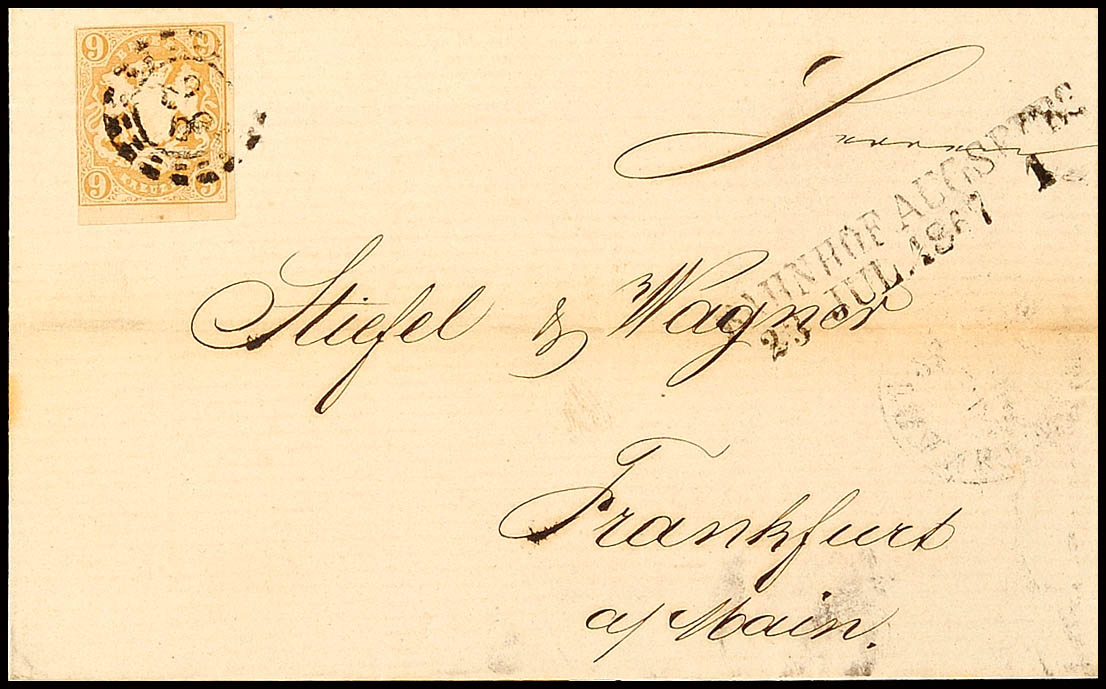 9 9
9 9
KREUZ
BAHNHOF AUGSBURG
JUL. 1867 1
Stiefel & Wagner
Frankfurt
a/ Main.